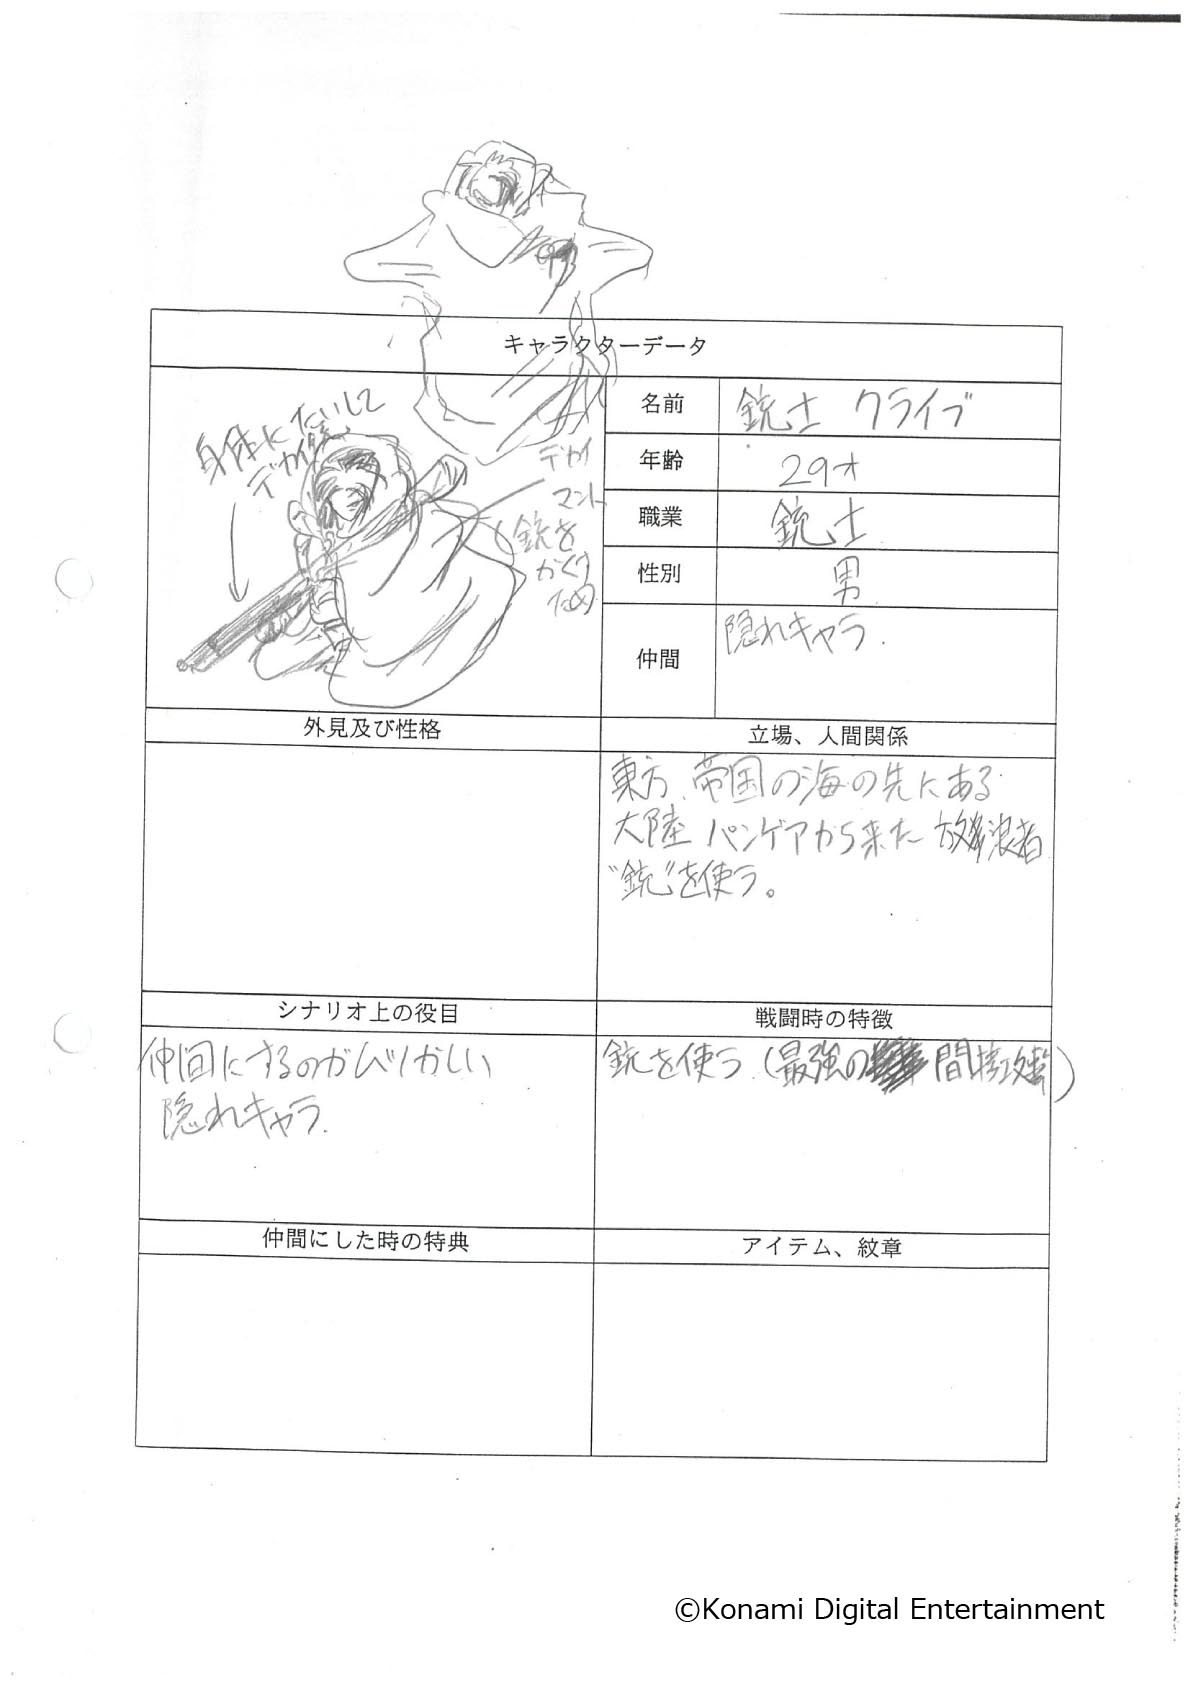 キャラクターデータ
身体にたいして
デカイ銃
デカイ
マント
銃を
かくす
ため
名前 銃士 クライブ
年齢 29才
職業 銃士
性別 男
仲間 隠れキャラ.
外見及び性格
立場、人間関係
東方、帝国の海の先にある
大陸 パンゲアから来た 放浪者
"銃"を使う。
シナリオ上の役目
仲間にするのがむずかしい
隠れキャラ.
戦闘時の特徴
銃を使う.(最強の 間接攻撃)
仲間にした時の特典
アイテム、紋章
©Konami Digital Entertainment